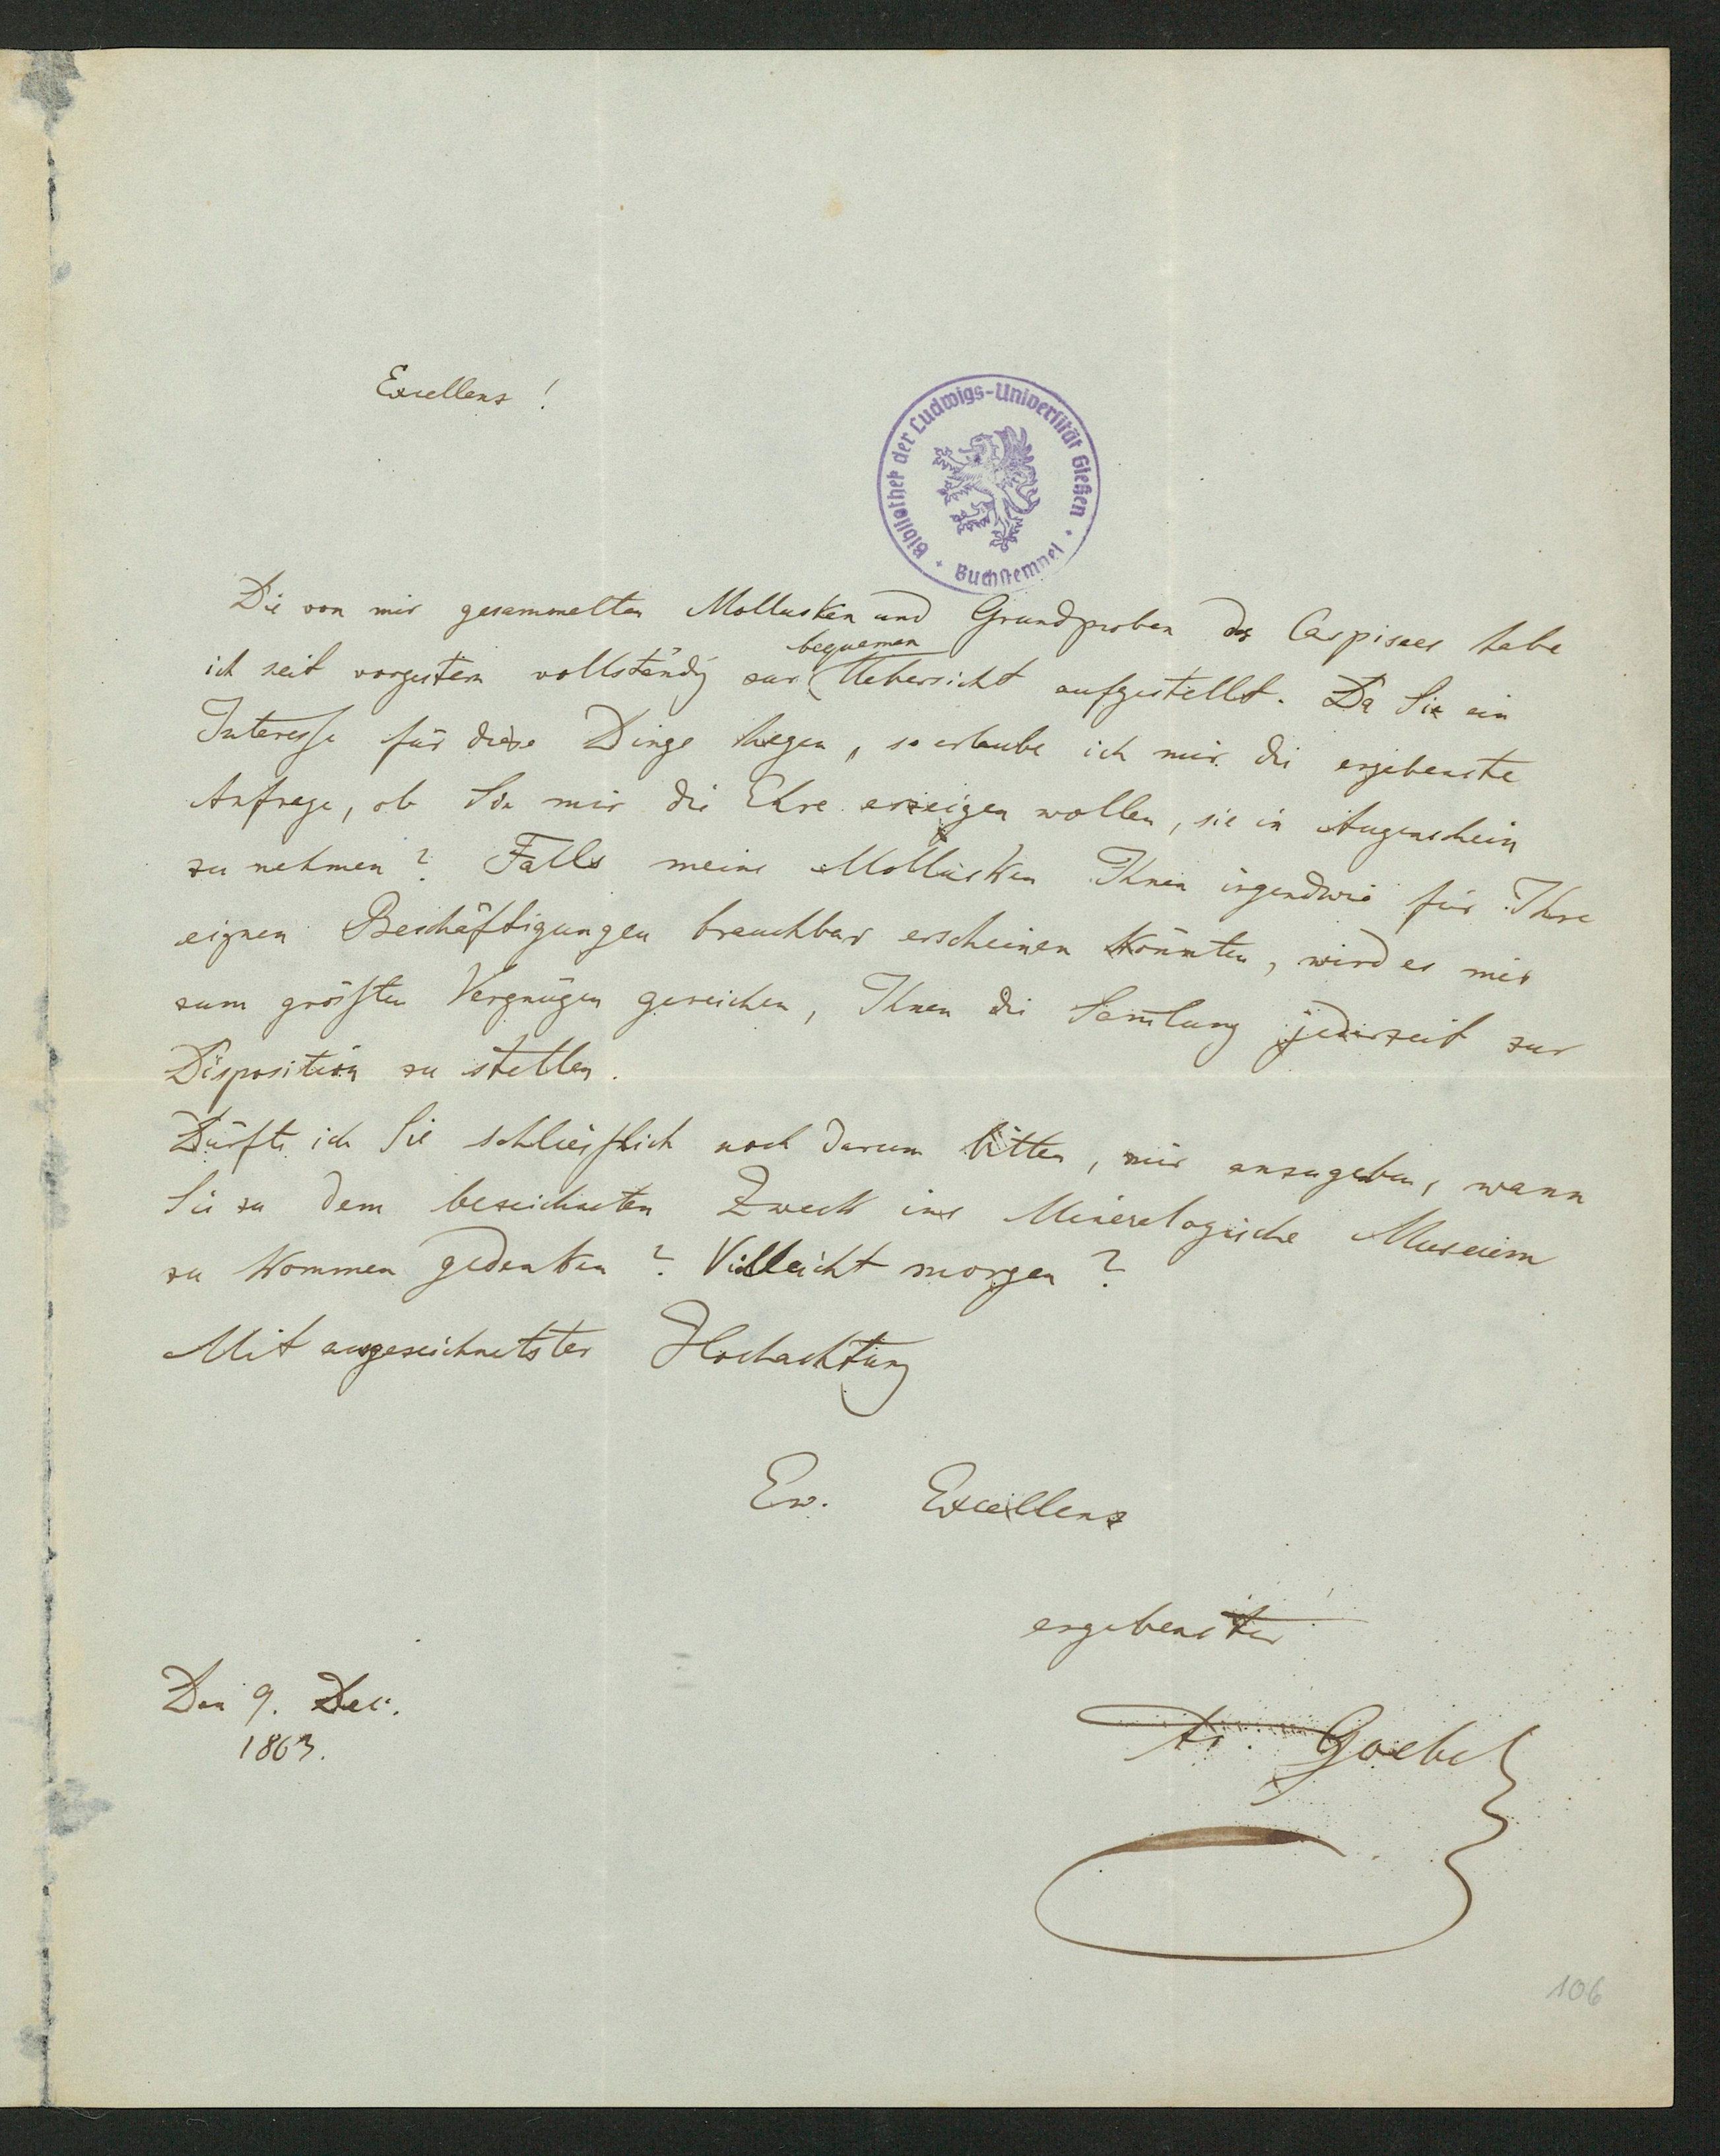 Excellenz!
Bibliothek der Ludwigs-Universität Gießen
Buchstempel
Die von mir gesammelten Mollusken und Grundproben des Caspisees habe
bequemen
ich seit vorgestern vollständig zur Uebersicht aufgestellt. Da Sie ein
Interesse für diese Dinge hegen, so erlaube ich mir die ergebenste
Anfrage, ob Sie mir die Ehre erzeigen wollen, sie in Augenschein
zu nehmen? Falls meine Mollusken Ihnen irgendwie für Ihre
eignen Beschäftigungen brauchbar erscheinen könnten, wird es mir
zum größten Vergnügen gereichen, Ihnen die Sam̅lung jederzeit zur
Disposition zu stellen.
Dürfte ich Sie schliesslich noch darum bitten, mir anzugeben, wann
Sie zu dem bezeichneten Zweck ins Mineralogische Museum
zu kommen gedenken? Vielleicht morgen?
Mit ausgezeichnetster Hochachtung
Ew. Excellenz
ergebenster
Den 9. Dec.
1863.
Goebel
106